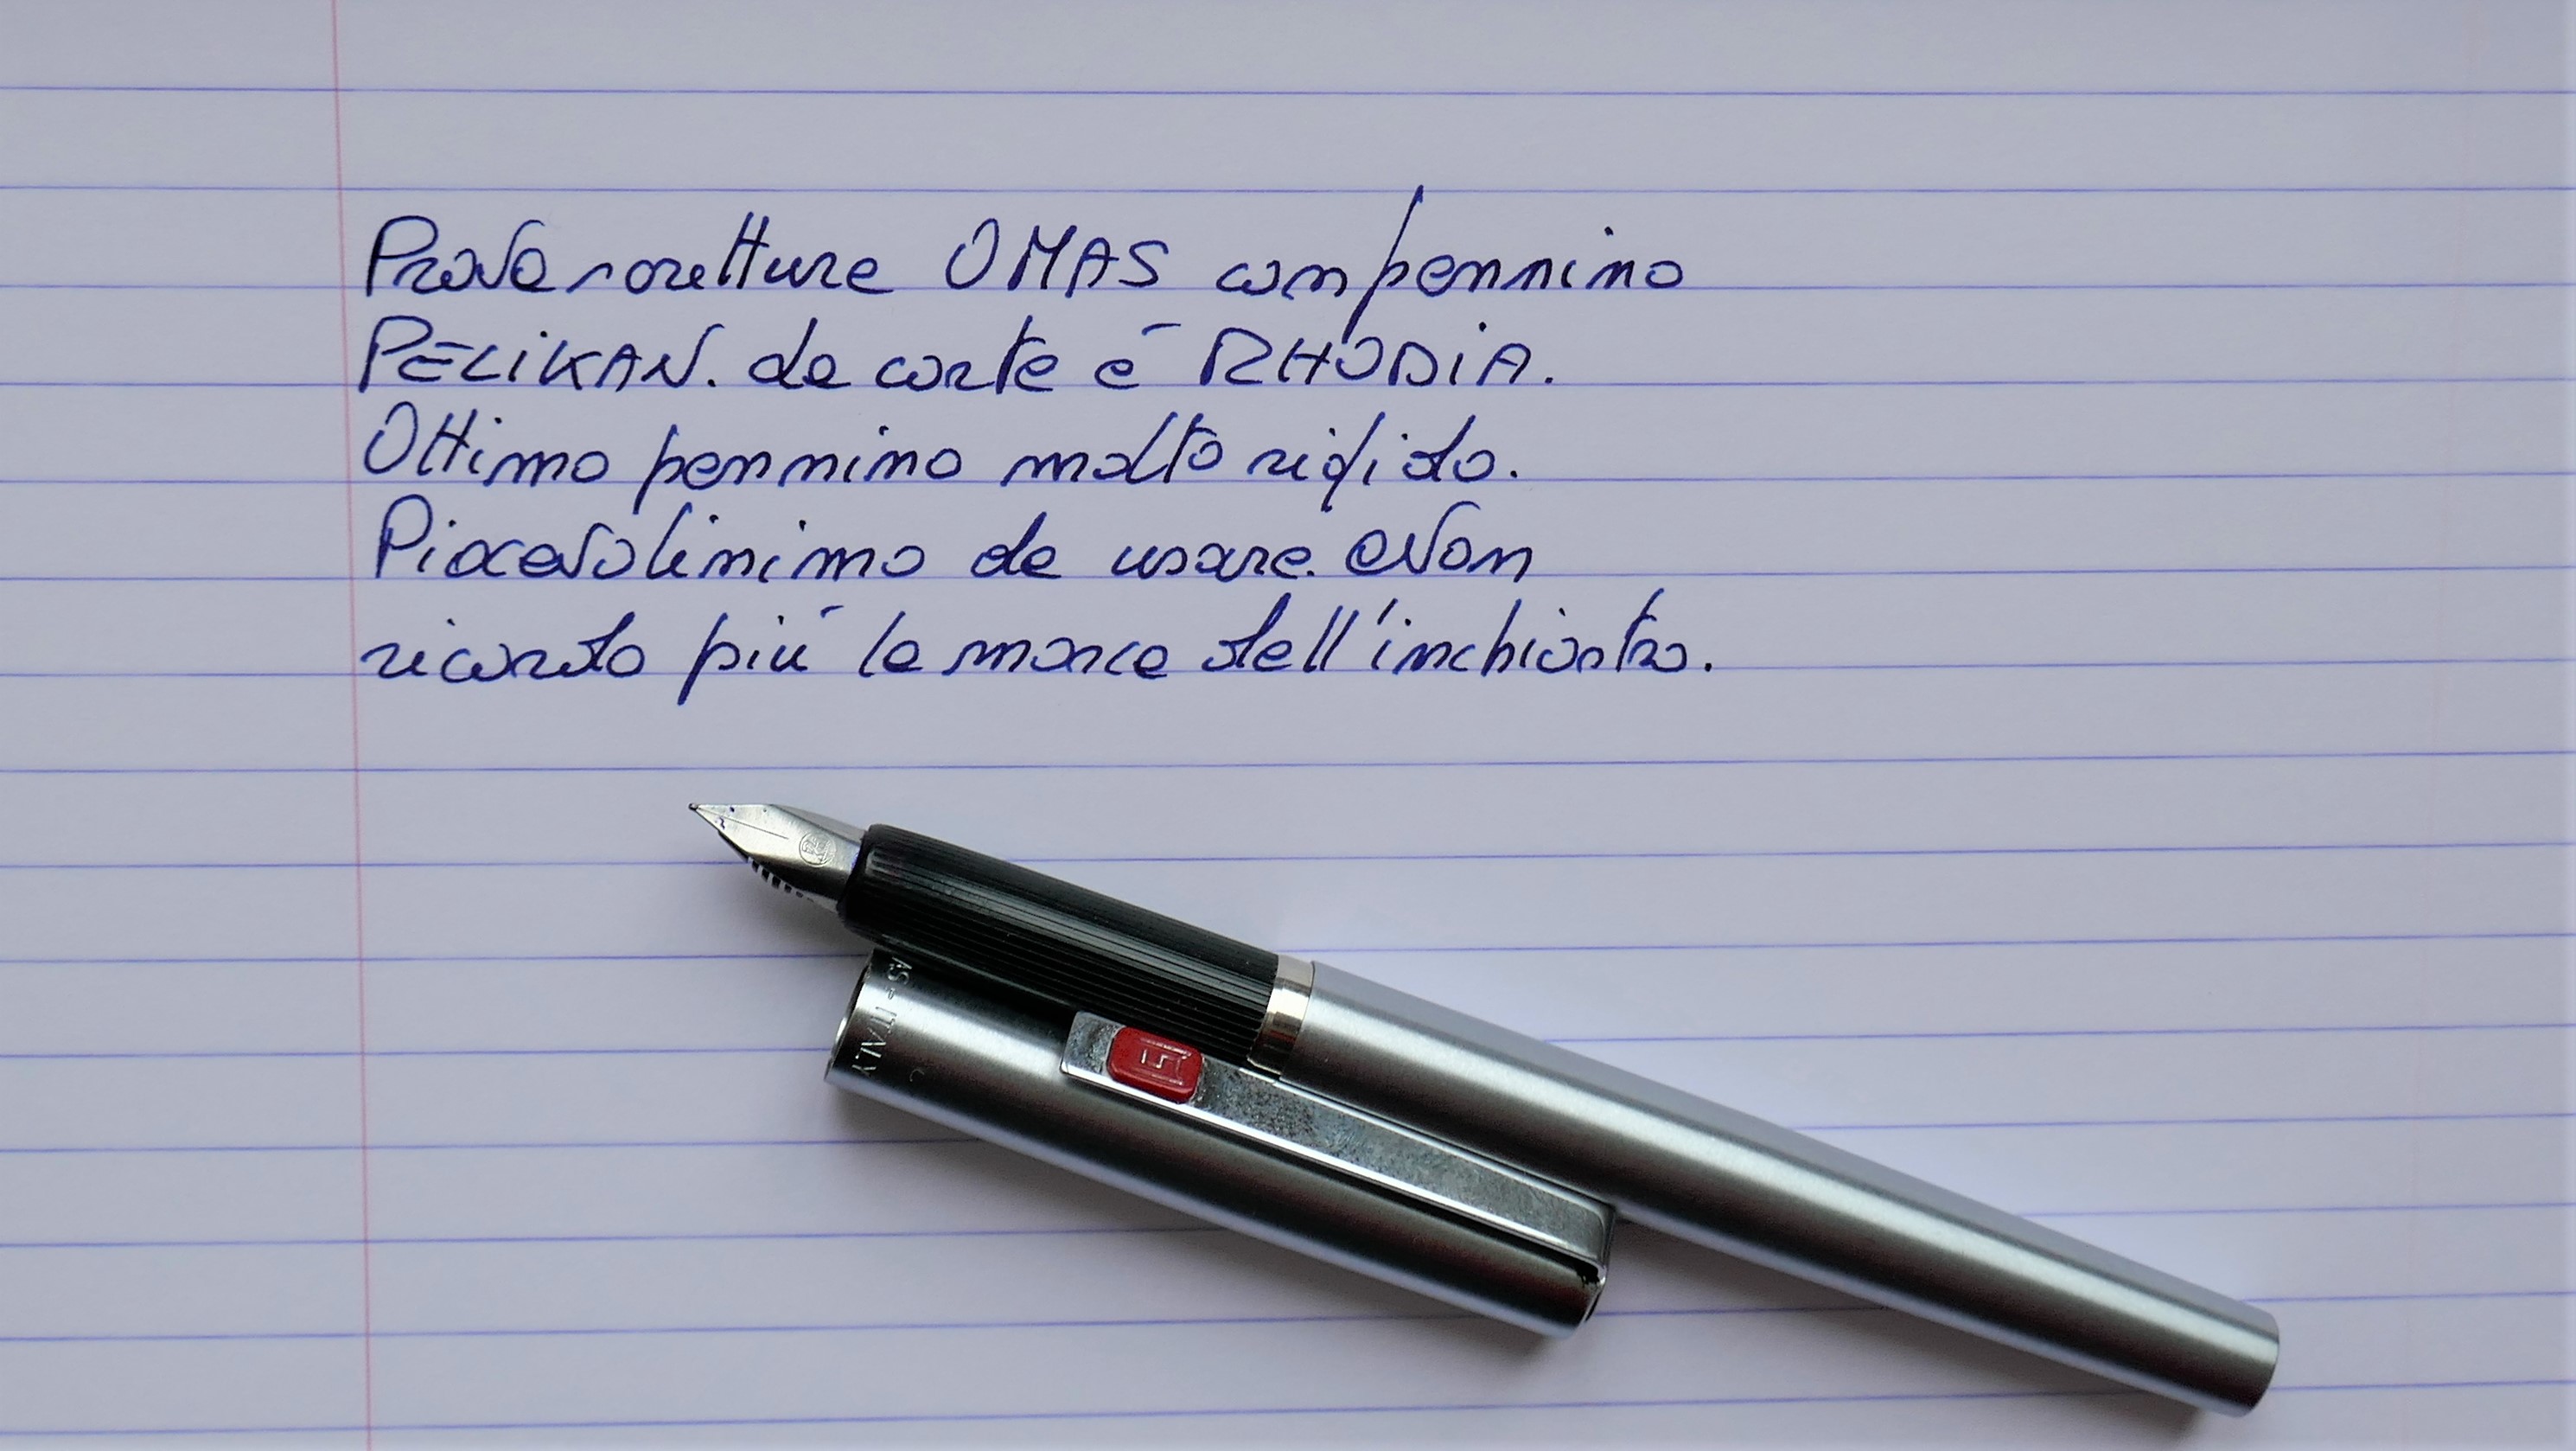 Prova scritture OMAS con pennino
PELIKAN. La carta é RHODIA.
Ottimo pennino molto rigido.
Piacevolissimo da usare. Non
ricordo piú la marca dell'inchiostro.
AS - ITALY